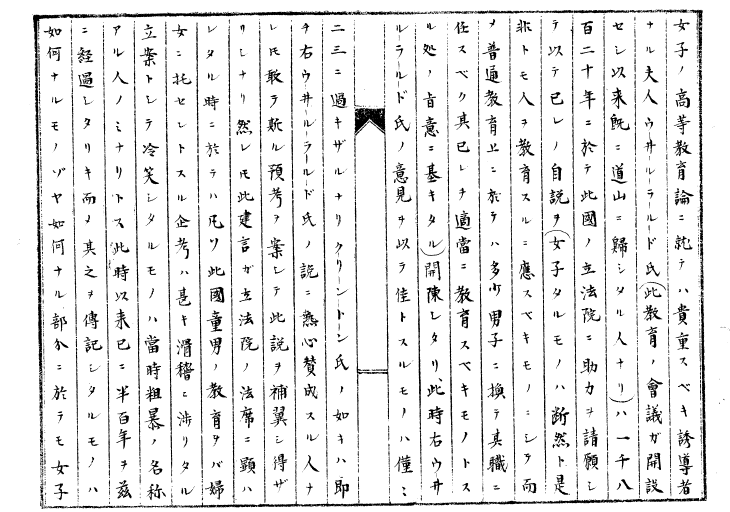 女子ノ高等教育論ニ就テハ貴重スベキ誘導者
ナル夫人ウ井ルラルード氏(此教育ノ會議ガ開設
セシ以来既ニ道山ニ歸シタル人ナリ)ハ一千八
百二十年ニ於テ此國ノ立法院ニ助力ヲ請願シ
テ以テ已レノ自説ヲ(女子タルモノハ断然ト是
非トモ人ヲ教育スルニ應スベキモノニシテ而
メ普通教育上ニ於テハ多少男子ニ換テ其職ニ
任スベク其已レヲ適當ニ教育スベキモノトス
ル処ノ旨意ニ基キタル)開陳シタリ此時右ウ井
ルラルド氏ノ意見ヲ以テ佳トスルモノハ僅ニ
二三ニ過キザルナリクリーントーン氏ノ如キハ即
チ右ウ井ールーラールド氏ノ説ニ熱心賛成スル人ナ
レ𪜈敢テ斯ル預考ヲ案シテ此説ヲ補翼シ得ザ
リシナリ然レ𪜈此建言ガ立法院ノ法席ニ顕ハ
レタル時ニ於テハ凡ソ此國童男ノ教育ヲバ婦
女ニ托セントスル企考ハ甚キ滑稽ニ渉リタル
立案トシテ冷笑シタルモノハ當時粗暴ノ名称
アル人ノミナリトス此時以来已ニ半百年ヲ茲
ニ経過シタリキ而メ其之ヲ傳記シタルモノハ
如何ナルモノゾヤ如何ナル部分ニ於テモ女子